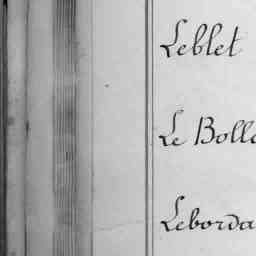 Leblet
Le Bolle
Leborda